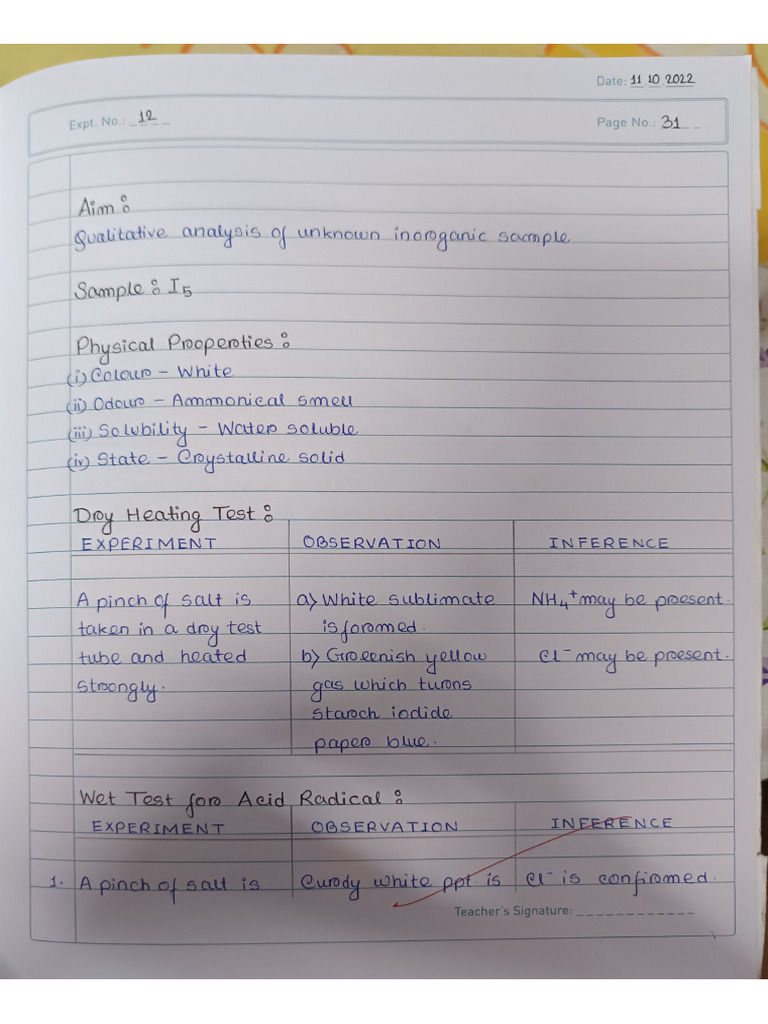 Date: 11 10 2022
Expt. No.: 12
Page No.: 31
Aim:
Qualitative analysis of unknown inorganic sample
Sample: I5
Physical Properties:
(i) Colour - White
(ii) Odour - Ammonical smell
(iii) Solubility - Water soluble
(iv) State - Crystalline solid
Dry Heating Test:
EXPERIMENT OBSERVATION INFERENCE
A pinch of salt is a) White sublimate NH4+ may be present.
taken in a dry test is formed.
tube and heated b) Greenish yellow Cl- may be present.
strongly. gas which turns
starch iodide
paper blue.
Wet Test for Acid Radical:
EXPERIMENT OBSERVATION INFERENCE
1. A pinch of salt is Curdy white ppt. is Cl- is confirmed.
Teacher's Signature: